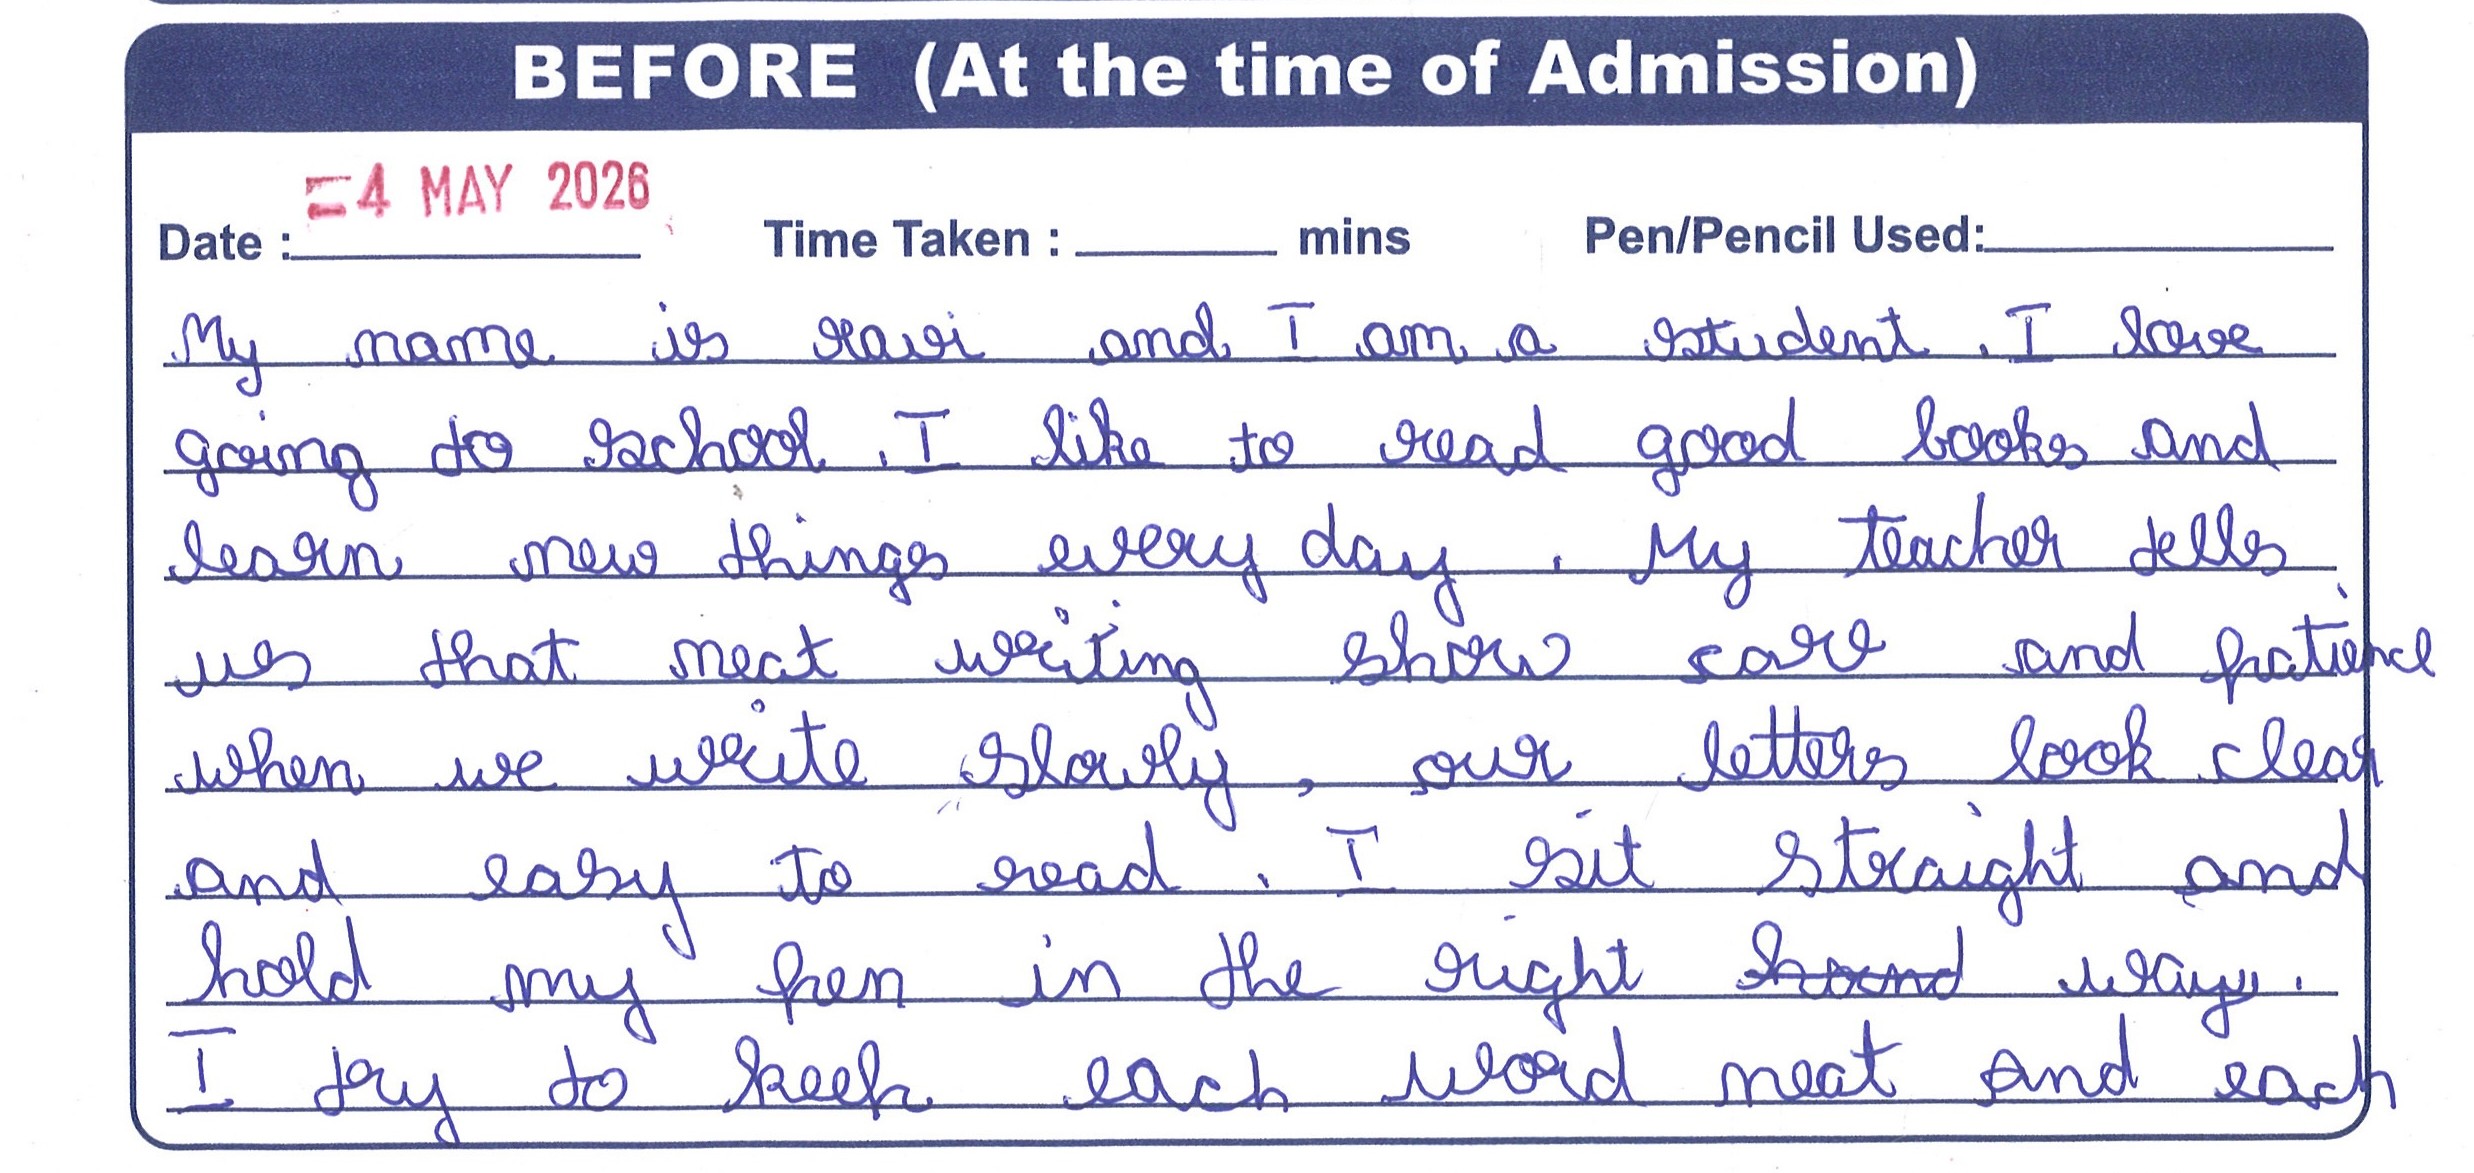 BEFORE (At the time of Admission)
=4 MAY 2026
Date : Time Taken : mins Pen/Pencil Used:
My name is ravi and I am a student . I love
going to school . I like to read good books and
learn new things every day . My teacher tells
us that neat writing show care and patience
when we write slowly , our letters look clear
and easy to read . I sit straight and
hold my pen in the right hand way .
I try to keep each word neat and each